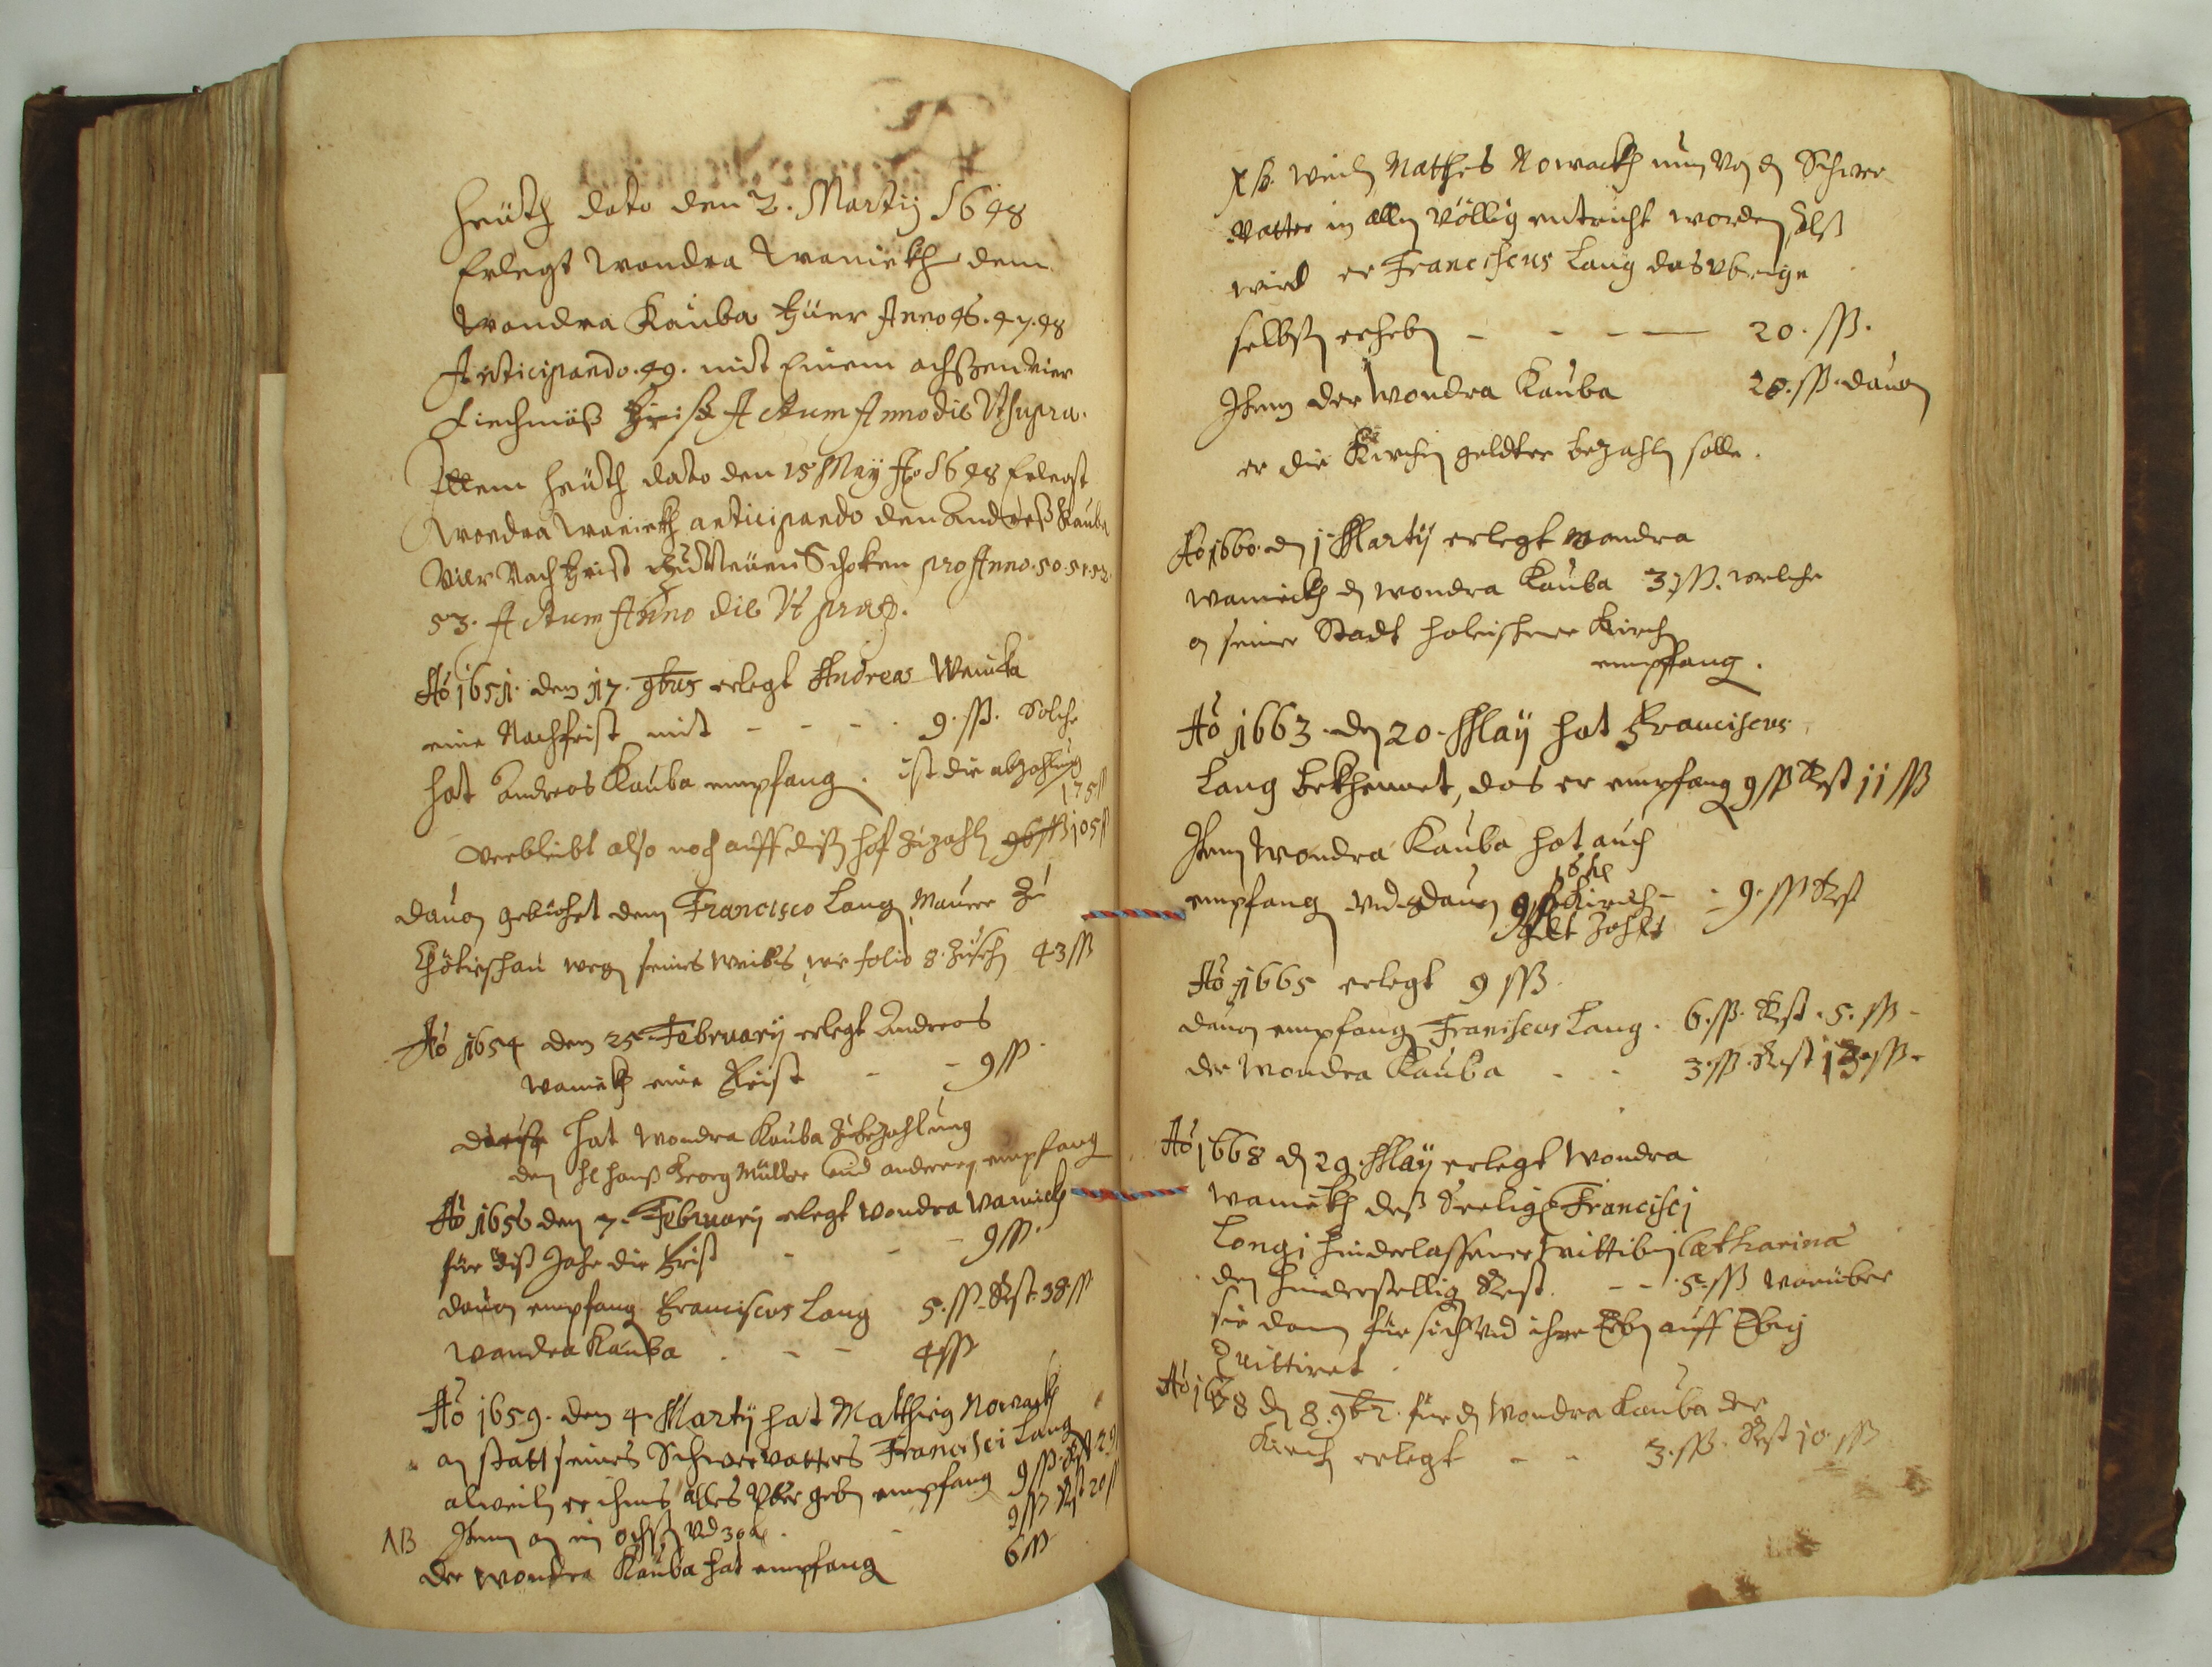 Heüth dato den 2. Martij 1648
Erlegt Wondra Waniekh dem
Wondra Kauba Anno 46. 47. 48
Anticipando. 49. mit Einem
Liechmöß Actum Anno die Vt supra.
Ittem heüth dato den 15 May Ao 1648 Erlegt
Wondra Waniekh anticipando den Andreß Kauba
Vier Nach Neüen Schoken pro Anno. 50. 51. 52.
53. Actum Anno die Vt
Ao 1651. den 17. 9bris erlegt Andreas Wanika
eine Nachfrist mit - - - 9. ßß. Solche
hat Andreas Kauba empfang. ist die abzahlung
175
Verbleibt also noch auff disen hof zu zahln 105
dauon gebürhet dem Francisco Lang Maurer zu
wegen seines Weibs, wie folio 8. zusehen 43 ßß
Ao 1654 den 25 February erlegt Andreas
Waniekh eine Frist - - 9 ßß
hat Wondra Kauba zubezahlung
den hl hanß Georg Müller vnd anderen empfang
Ao 1656 den 7. February erlegt Wondra Waniekh
für diß Jahr die Frist - - - 9 ßß.
dauon empfang Franciscus Lang 5. ßß. Rest. 38 ßß
Wondra Kauba . - - 4 ßß
Ao 1659. den 4. Marty hat Matthieg Nowackh
an statt seines Schwervatters Francisci Lang
alweiln er ihms alles Vber geben empfang 9 ßß. Rest 29
NB Item an ein ochsen vnd 30 9 ßß Rest 20
der Wondra Kauba hat empfang 6 ßß
weiln Mathes Nowackh nun Schwer
Vatter in allen völlig entricht worden, Alß
wird er Franciscus Lang das vbrige
selbsten erheben - - - - 20. ßß.
Item der Wondra Kauba 20. ßß. dauon
er die Kirchen geldter bezahln solle.
Ao 1660. den 1 Marty erlegt Wondra
Wanieckh den Wondra Kauba 3 ßß. welche
an seiner Stadt Kirchen
empfang.
Ao 1663. den 20. May hat Franciscus
Lang bekhennet, das er empfang 9 ßß Rest 11 ßß
Item Wondra Kauba hat auch
empfang vnd dauon Kirch - - 9. ßß Rest
gelt zahlt
Ao 1665 erlegt 9 ßß.
dauon empfang Franciscus Lang. 6. ßß. Rest. 5. ßß -
der Wondra Kauba - - 3. ßß. Rest 13. ßß -
Ao 1668 den 29. May erlegt Wondra
Waniekh deß Seeligen Francisci
Langi hinderlassener Wittibin Catharina
den hinderstelligen Rest. - - 5. ßß worüber
sie dann für sich vnd ihre Erben auff Ebig
Quittiret.
Ao 1678 den 8. 9br. für den Wondra Kauba der
Kirchen erlegt - - 3. ßß. Rest 10. ßß